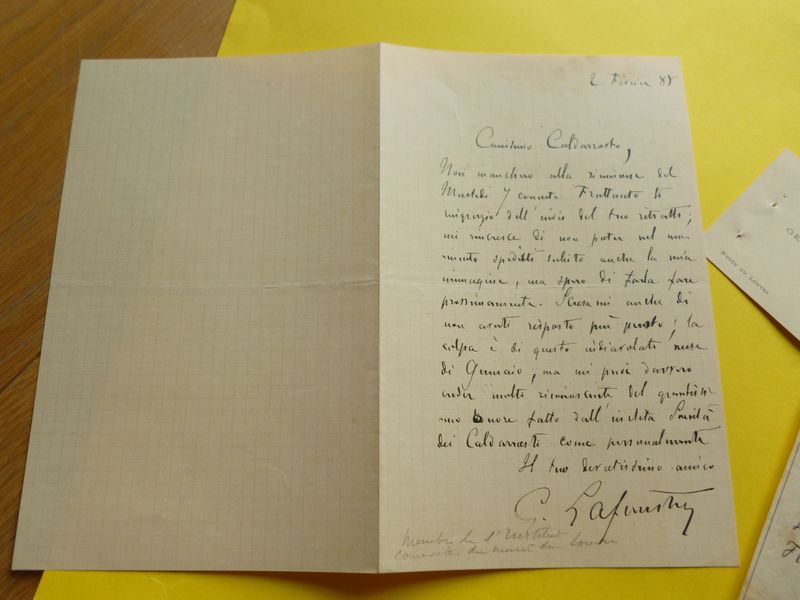 2 Février 88
Carissimo Caldarrosto,
Non mancherò alla riunione del
Martedi 7 corrente. Frattanto ti
ringrazio dell'invio del tuo ritratto;
mi rincresce di non poter nel mo-
mento spedirti subito anche la mia
immagine, ma spero di farla fare
prossimamente. Scusami anche di
non averti risposto più presto; la
colpa è di questo indiavolato mese
di Gennaio, ma mi puoi davvero
creder molto riconoscente del grandissi-
mo onore fatto dall'inclita Società
dei Caldarrosti come personalmente
Il tuo devotissimo amico
G. Lafenestre
Membre de l'Institut
conservateur du musée du Louvre
GE
MUSÉE DU LOUVRE